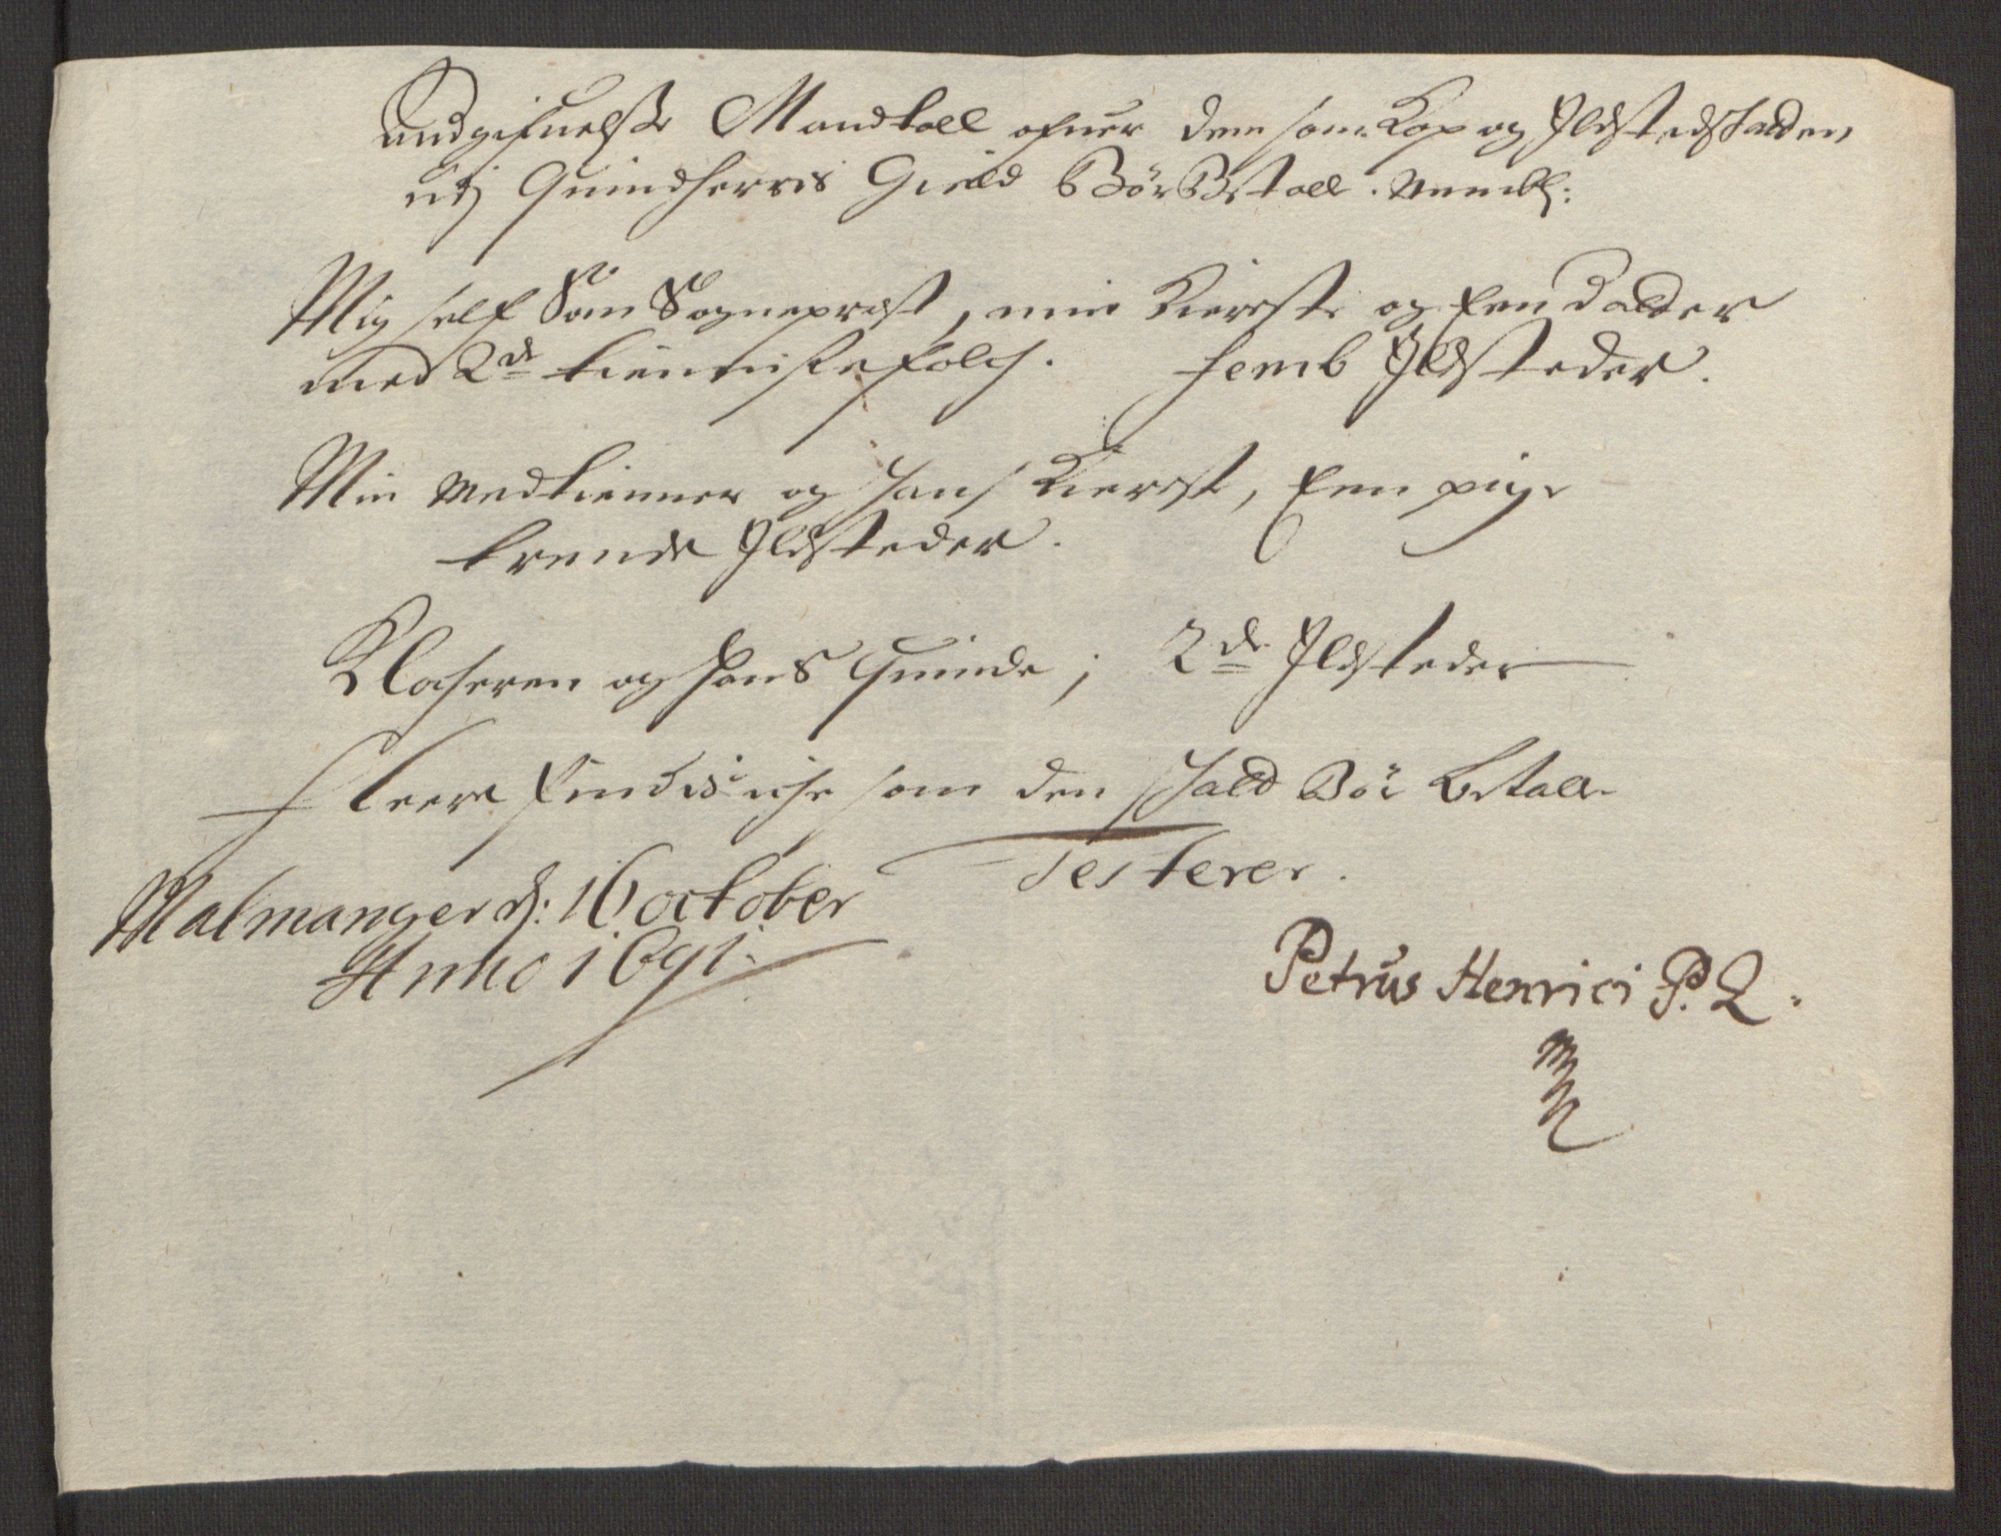 Andgifuelse Mandtall ofuer dem som Kop og Ildstedskatten
udj Quindherris Gield Bör Betalle. Nemlh:
Mig self Som Sogneprest, min Kierste og Een Datter
med 2de tiennistefolch. femb Ildsteder.
Min Medtienner og hans Kierest, Een pige
trende Ildsteder.
Klocheren og hans Quinde; 2de Ildsteder
Fleere findis iche som den skatt Bör betalle
Testerer.
Malmanger d: 16 october
Anno 1691.
Petrus Henrici P. L.